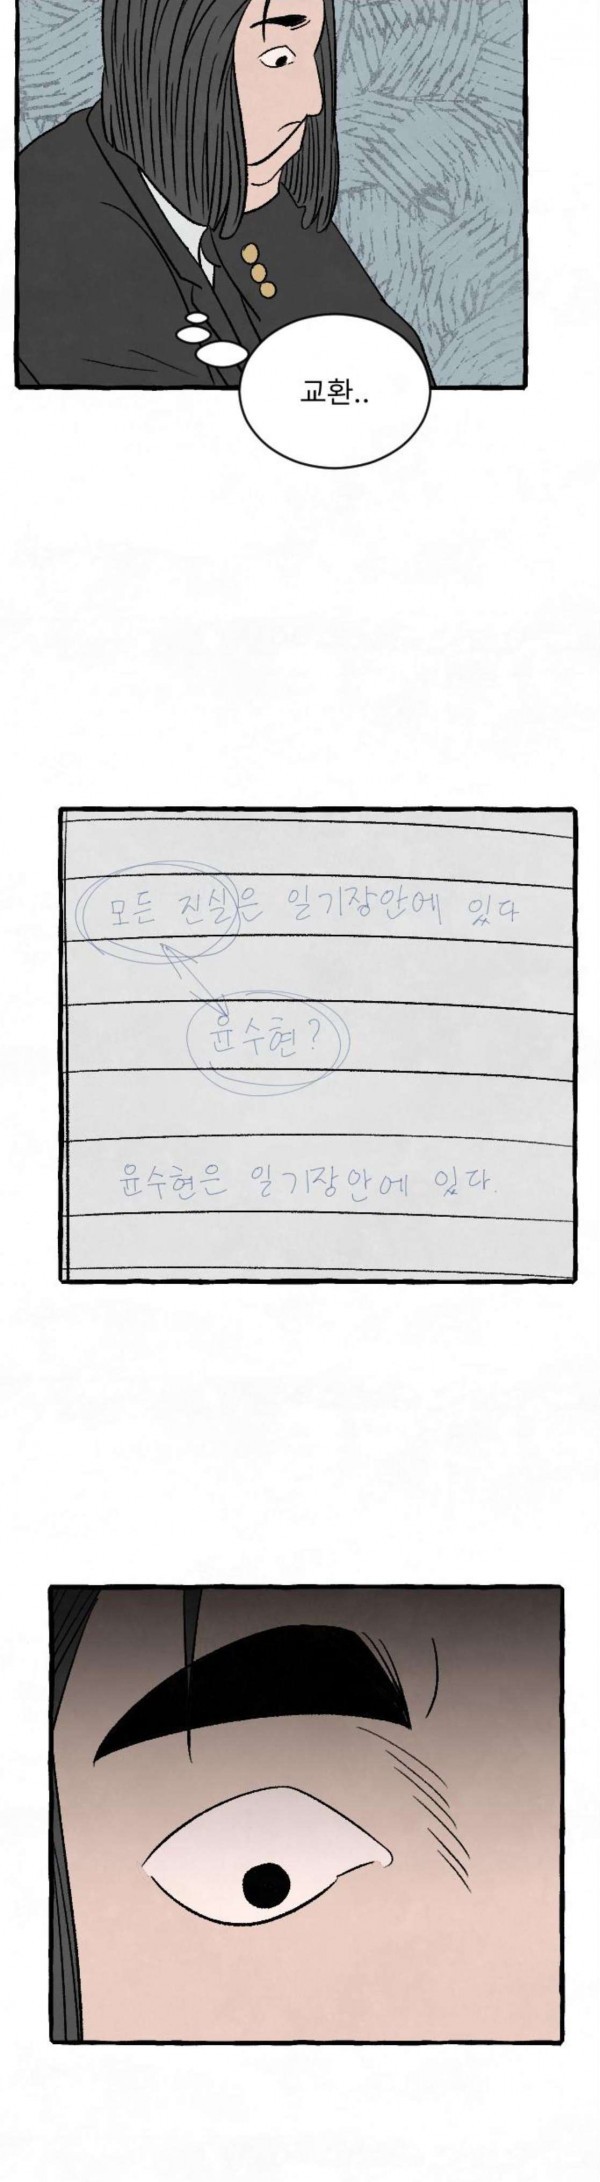 교환..
모든 진실은 일기장안에 있다
윤수현?
윤수현은 일기장안에 있다.